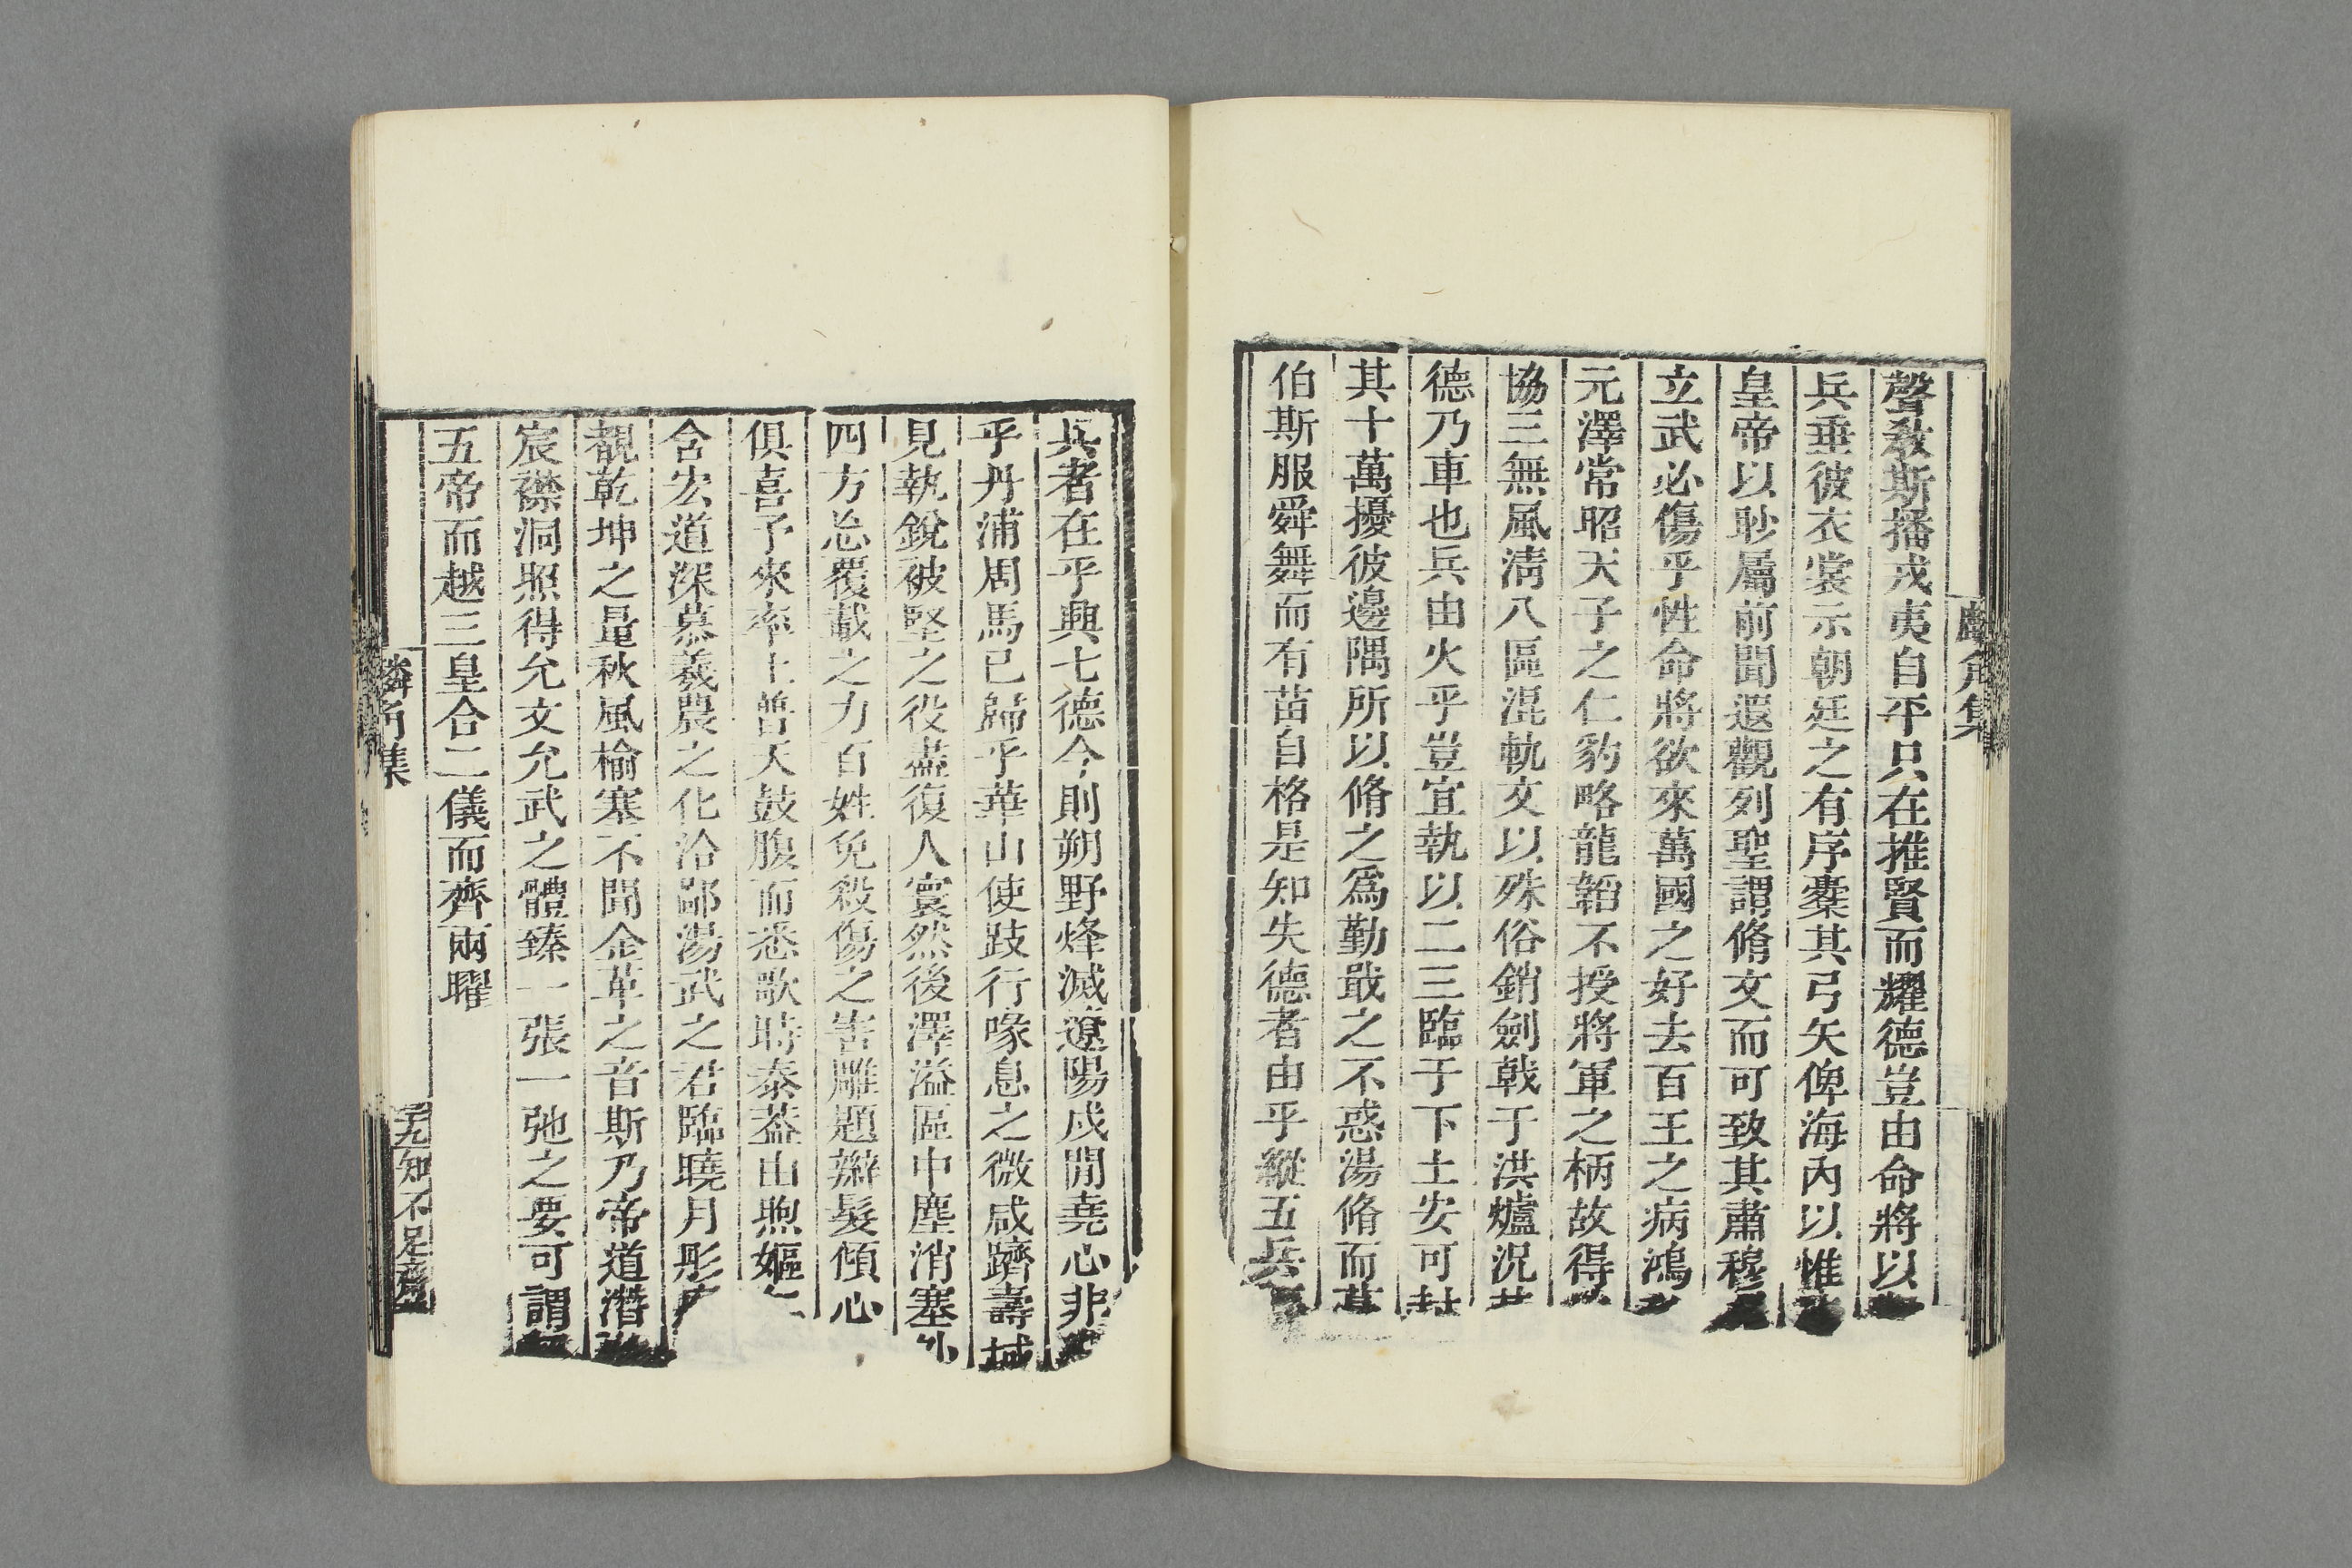 麟角集
聲教斯播戎夷自平只在推賢而耀德豈由命將以
兵垂彼衣裳示朝廷之有序櫜其弓矢俾海內以惟
皇帝以眇屬前聞遐觀列聖謂脩文而可致其肅穆
立武必傷乎性命將欲來萬國之好去百王之病鴻
元澤常昭天子之仁豹略龍韜不授將軍之柄故得
協三無風淸八區混軌文以殊俗銷劍戟于洪爐況
德乃車也兵由火乎豈宜執以二三臨于下土安可
其十萬擾彼邊隅所以脩之爲勤戢之不惑湯脩而
伯斯服舜舞而有苗自格是知失德者由乎縱五兵
兵者在乎興七德今則朔野烽滅遼陽戍閒堯心非
乎丹浦周馬已歸乎華山使跂行喙息之微咸躋壽域
見執銳被堅之役盡復人寰然後澤溢區中塵消塞外
四方忩覆載之力百姓免殺傷之害雕題辮髮傾心
俱喜予來率土普天鼓腹而悉歌時泰葢由煦嫗
含宏道深慕羲農之化洽鄙湯武之君臨曉月彤
覩乾坤之量秋風榆塞不聞金革之音斯乃帝道潛
宸襟洞照得允文允武之體臻一張一弛之要可謂
五帝而越三皇合二儀而齊兩曜
麟角集
知不足齋